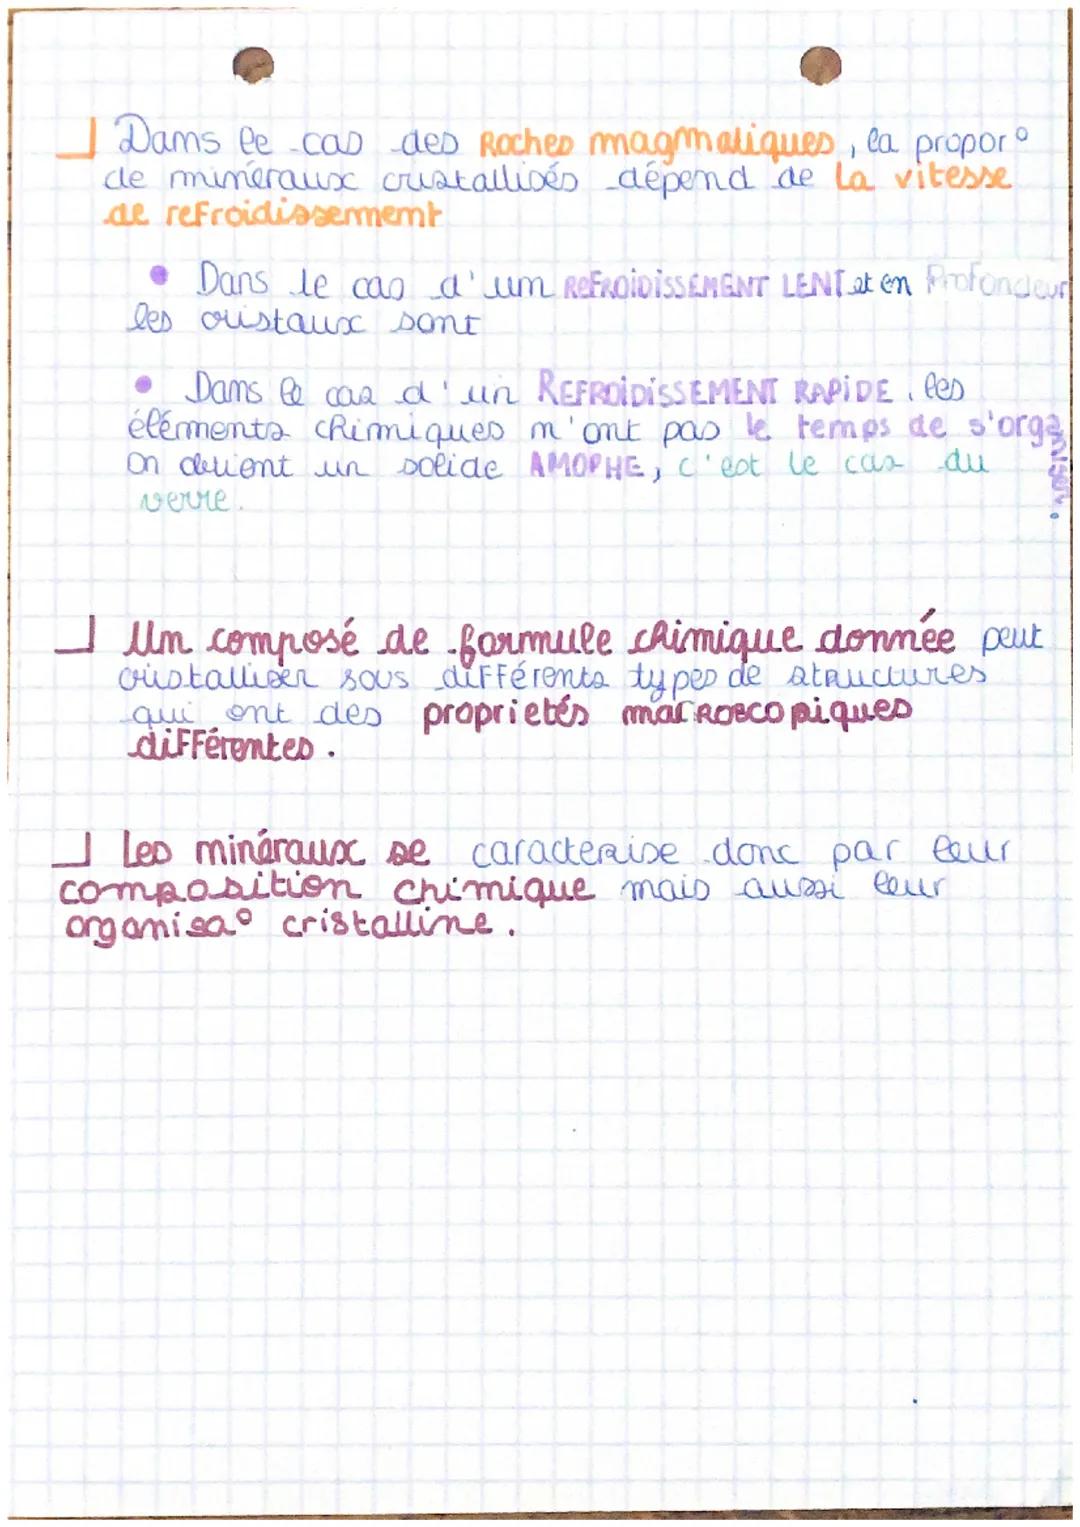 Dans le cas des Roches magmatiques, la propor°
de minéraux cristallisés dépend de la vitesse
de refroidissement
• Dans le cas d'un REFROIDISSEMENT LENT et en Profondeur
les cristaux sont
• Dans le cas d'un REFROIDISSEMENT RAPIDE, les
éléments chimiques n'ont pas le temps de s'organiser.
On devient un solide AMOPHE, c'est le cas du
verre.
Un composé de formule chimique donnée peut
cristalliser sous différents types de structures
qui ont des proprietés macroscopiques
différentes.
Les minéraux se caracterise donc par leur
composition chimique mais aussi leur
organisa° cristalline.